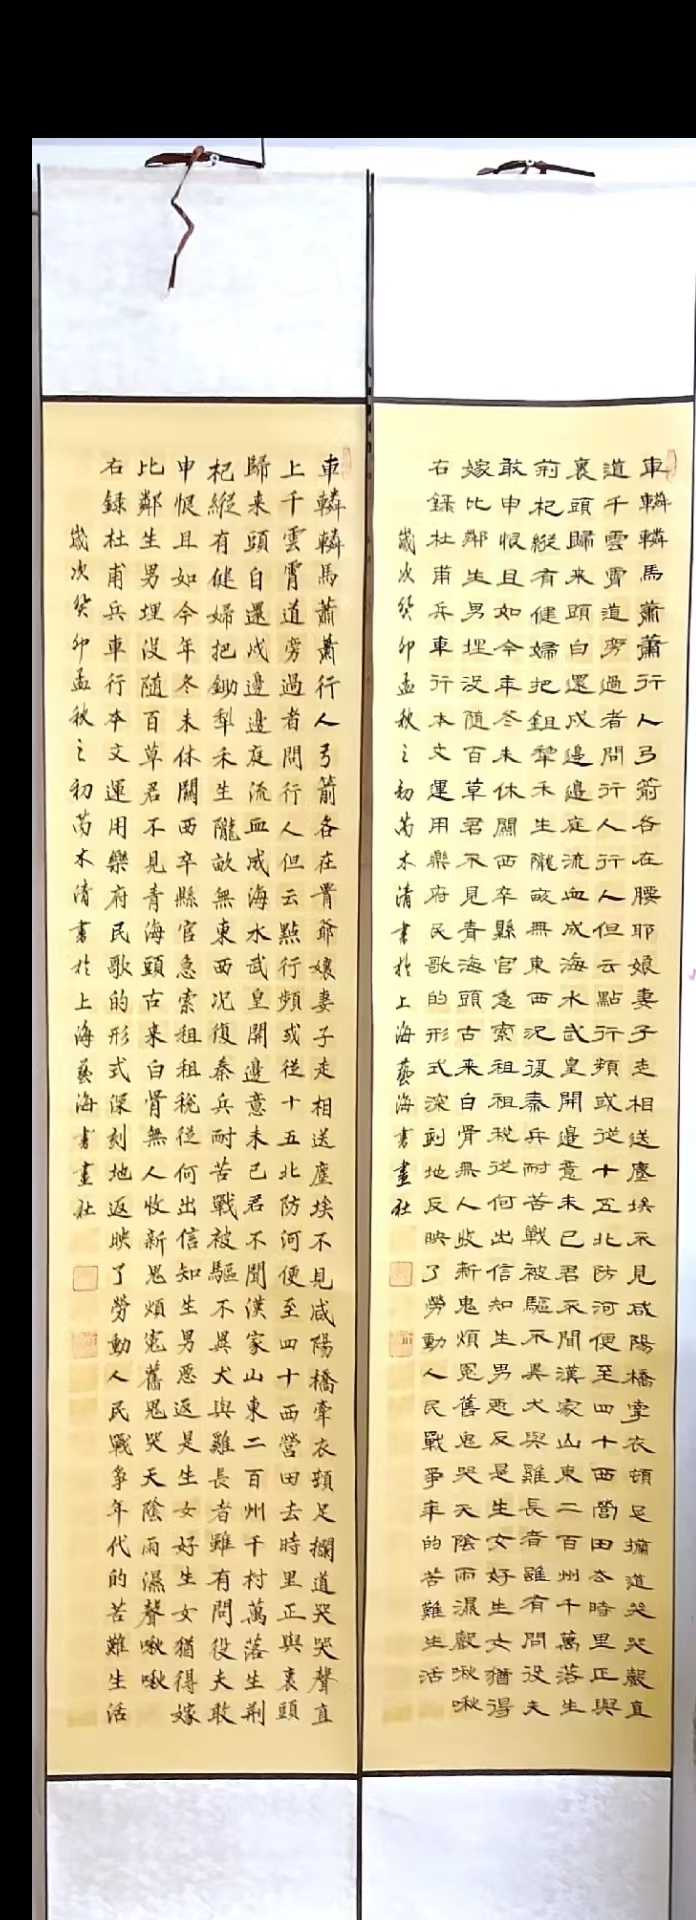 車轔轔馬蕭蕭行人弓箭各在腰耶娘妻子走相送塵埃不見咸陽橋牽衣頓足攔道哭哭聲直
道千雲霄道旁過者問行人行人但云點行頻或從十五北防河便至四十西營田去時里正與
裹頭歸来頭白還戍邊邊庭流血成海水武皇開邊意未已君不聞漢家山東二百州千萬落生
荊杞縱有健婦把鉏犂禾生隴畝無東西況復秦兵耐苦戰被驅不異犬與雞長者雖有問役夫
敢申恨且如今年冬未休關西卒縣官急索租租税從何出信知生男惡反是生女好生女猶得
嫁比鄰生男埋没随百草君不見青海頭古来白骨無人收新鬼煩冤舊鬼哭天陰雨濕聲啾啾
右録杜甫兵車行本文運用樂府民歌的形式深刻地反映了勞動人民戰爭年代的苦難生活
歲次癸卯孟秋之初芮木清書於上海藝海書畫社
車轔轔馬蕭蕭行人弓箭各在爺孃妻子走相送塵埃不見咸陽橋牽衣頓足攔道哭哭聲直
上千雲霄道旁過者問行人但云點行頻或從十五北防河便至四十西營田去時里正與裹頭
歸来頭白還戍邊邊庭流血成海水武皇開邊意未已君不聞漢家山東二百州千村萬落生荊
杞縱有健婦把鋤犁禾生隴畝無東西况復秦兵耐苦戰被驅不異犬與雞長者雖有問役夫敢
申恨且如今年冬未休關西卒縣官急索租租税從何出信知生男惡返是生女好生女猶得嫁
比鄰生男埋没随百草君不見青海頭古来白骨無人收新鬼煩冤舊鬼哭天陰雨濕聲啾啾
右録杜甫兵車行本文運用樂府民歌的形式深刻地返映了勞動人民戰爭年代的苦難生活
歲次癸卯孟秋之初芮木清書於上海藝海書畫社